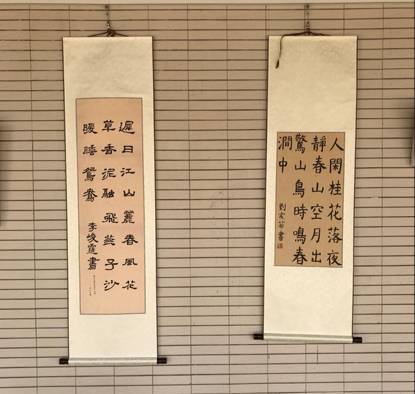 人閑桂花落夜
靜春山空月出
驚山鳥時鳴春
澗中
劉書
遲日江山麗春風花
草香泥融飛燕子沙
暖睡鴛鴦
李峻霆書